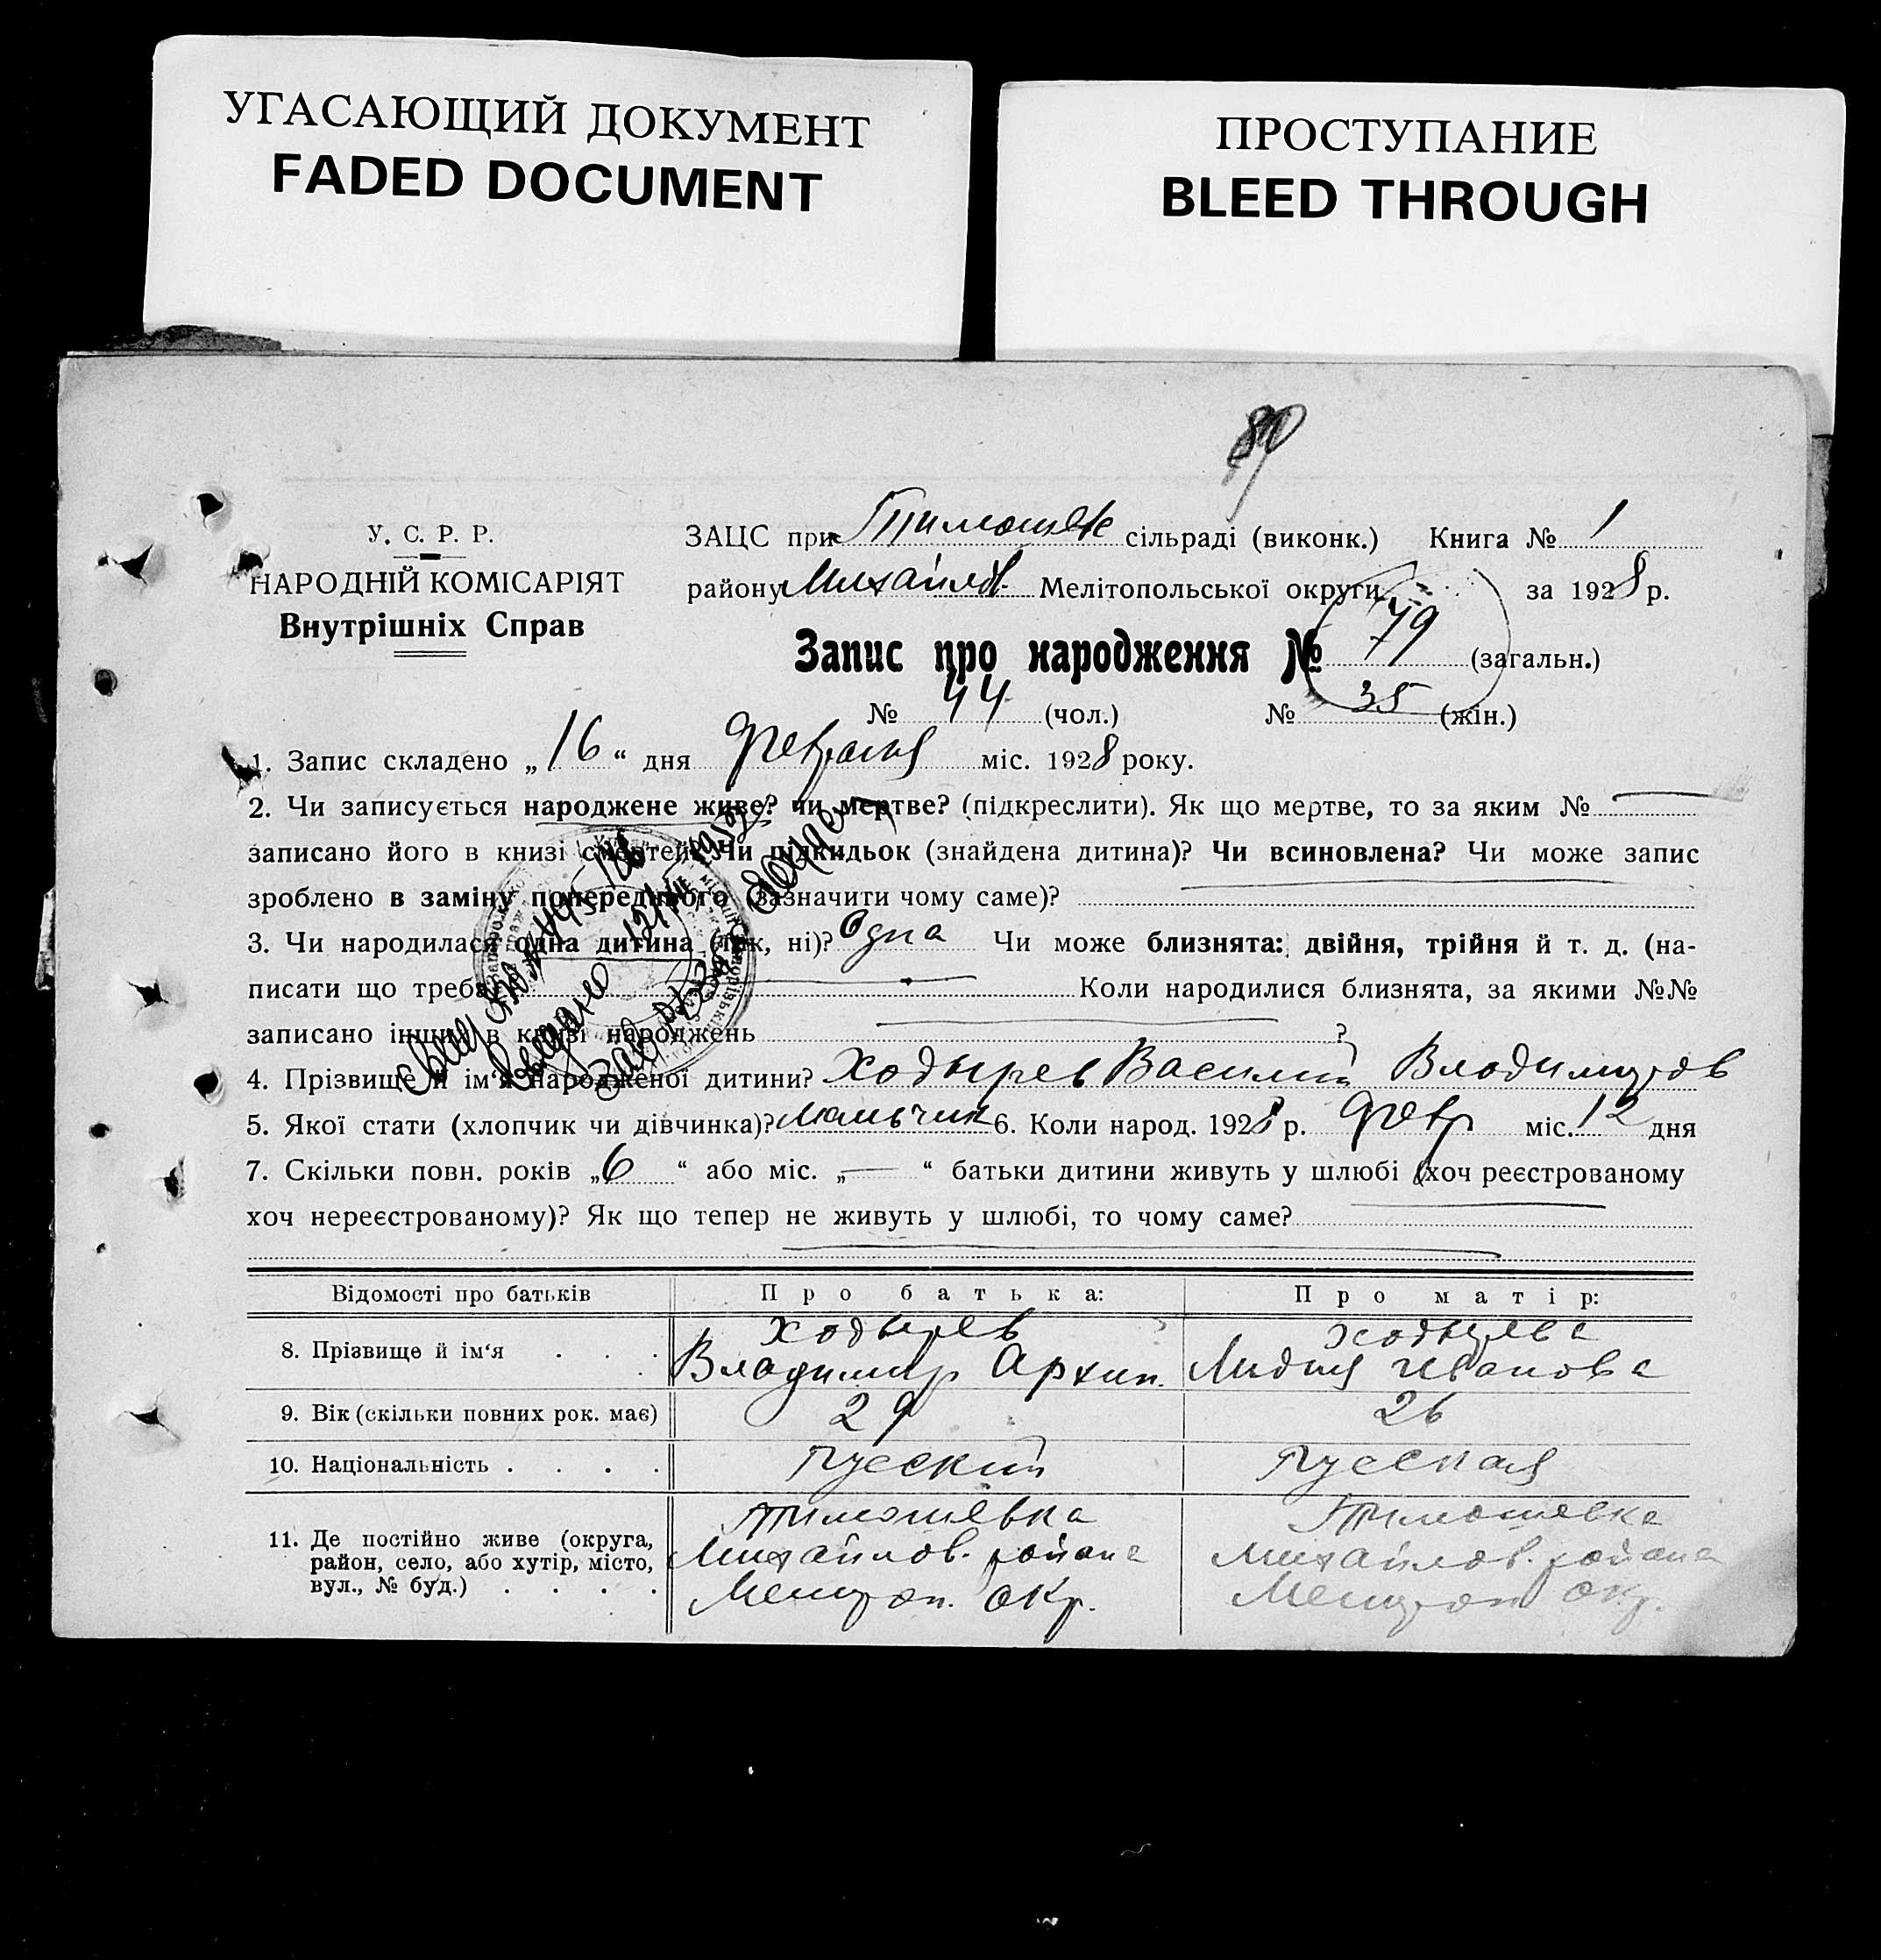 УГАСАЮЩИЙ ДОКУМЕНТ
FADED DOCUMENT
ПРОСТУПАНИЕ
BLEED THROUGH
У. С. Р. Р.
НАРОДНІЙ КОМІСАРІЯТ
Внутрішніх Справ
ЗАЦС при Тимошев сільраді (виконк.) Книга № 1
району Михайлов. Мелітопольської округи за 1928 р.
Запис про народження № 79 (загальн.)
№ 44 (чол.) № 35 (жін.)
1. Запис складено „16“ дня февраля міс. 1928 року.
2. Чи записується народжене живе? чи мертве? (підкреслити). Як що мертве, то за яким №
записано його в книзі смертей? Чи підкидьок (знайдена дитина)? Чи всиновлена? Чи може запис
зроблено в заміну попереднього (зазначити чому саме)?
3. Чи народилася одна дитина (так, ні)? Одна Чи може близнята: двійня, трійня й т. д. (на-
писати що треба) Коли народилися близнята, за якими №№
записано інших в книзі народжень ?
4. Прізвище й ім‘я народженої дитини? Ходырев Василий Владимиров
5. Якої стати (хлопчик чи дівчинка)? Мальчик 6. Коли народ. 1928 р. февр міс. 12 дня
7. Скільки повн. років „6“ або міс. „—“ батьки дитини живуть у шлюбі (хоч реєстрованому
хоч нереєстрованому)? Як що тепер не живуть у шлюбі, то чому саме?
Відомості про батьків Про батька: Про матір:
8. Прізвище й ім‘я . . . Ходырев Ходырева
Владимир Архип. Лидия Иванова
9. Вік (скільки повних рок. має) 29 26
10. Національність . . . . Русский Русская
11. Де постійно живе (округа, район, село, або хутір, місто, вул., № буд.) . . . .
Тимошевка Тимошевка
Михайлов. района Михайлов. района
Мелитоп. окр. Мелитоп окр.